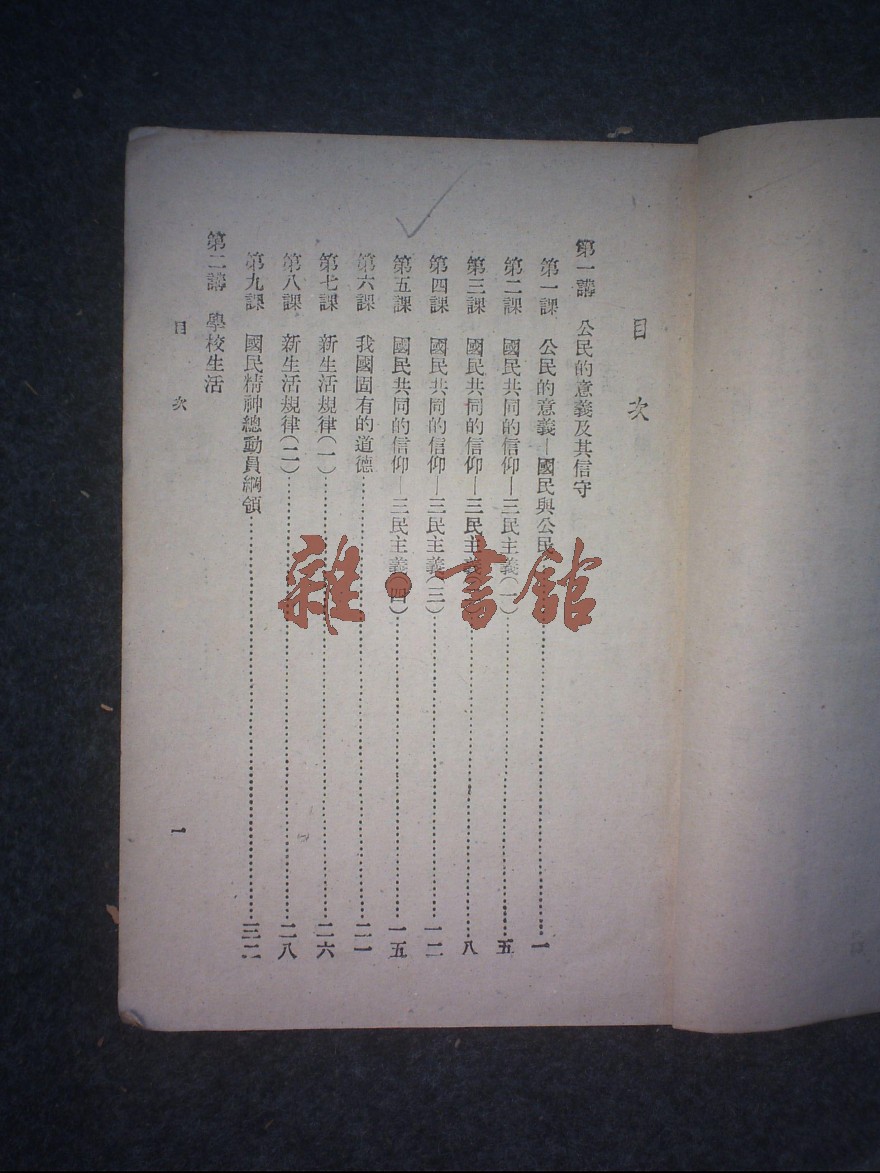 目次
第一講 公民的意義及其信守
第一課 公民的意義—國民與公民……一
第二課 國民共同的信仰—三民主義(一)……五
第三課 國民共同的信仰—三民主義……八
第四課 國民共同的信仰—三民主義(三)……一二
第五課 國民共同的信仰—三民主義(四)……一五
第六課 我國固有的道德……二一
第七課 新生活規律(一)……二六
第八課 新生活規律(二)……二八
第九課 國民精神總動員綱領……三二
第二講 學校生活
目次
一
雜·書館